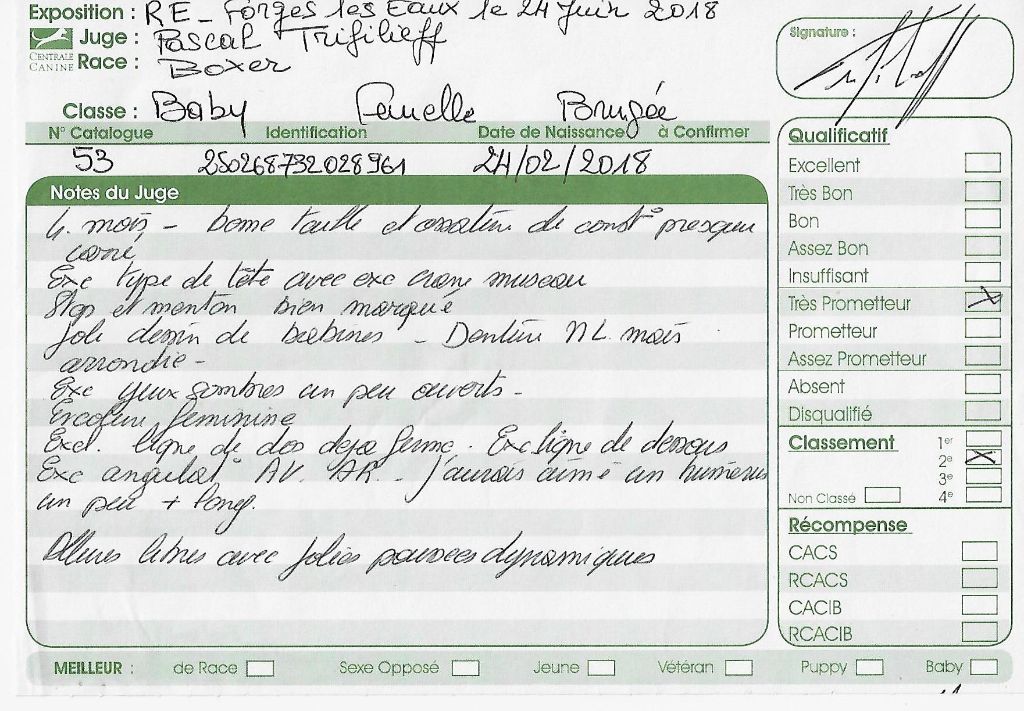 Exposition : RE - Forges les Eaux le 24 Juin 2018
Juge : Pascal Trifilieff
CENTRALE CANINE
Race : Boxer
Signature :
Classe : Baby Femelle Bringée
N° Catalogue Identification Date de Naissance à Confirmer
53 250268732028961 24/02/2018
Notes du Juge
4 mois - bonne taille et ossature de const° presque
carré
Exc type de tête avec exc crane museau
Stop et menton bien marqué
Joli dessin de babines - Dentition NL. mais
arrondie -
Exc yeux sombres un peu ouverts -
Encolure feminine
Excl. ligne de dos deja ferme. Exc ligne de dessous
Exc angulat° AV. AR. - J'aurais aimé un humérus
un peu + long.
Allures libres avec jolies poussées dynamiques
Qualificatif
Excellent
Très Bon
Bon
Assez Bon
Insuffisant
Très Prometteur X
Prometteur
Assez Prometteur
Absent
Disqualifié
Classement 1er
2e X
3e
Non Classé 4e
Récompense
CACS
RCACS
CACIB
RCACIB
MEILLEUR : de Race Sexe Opposé Jeune Vétéran Puppy Baby